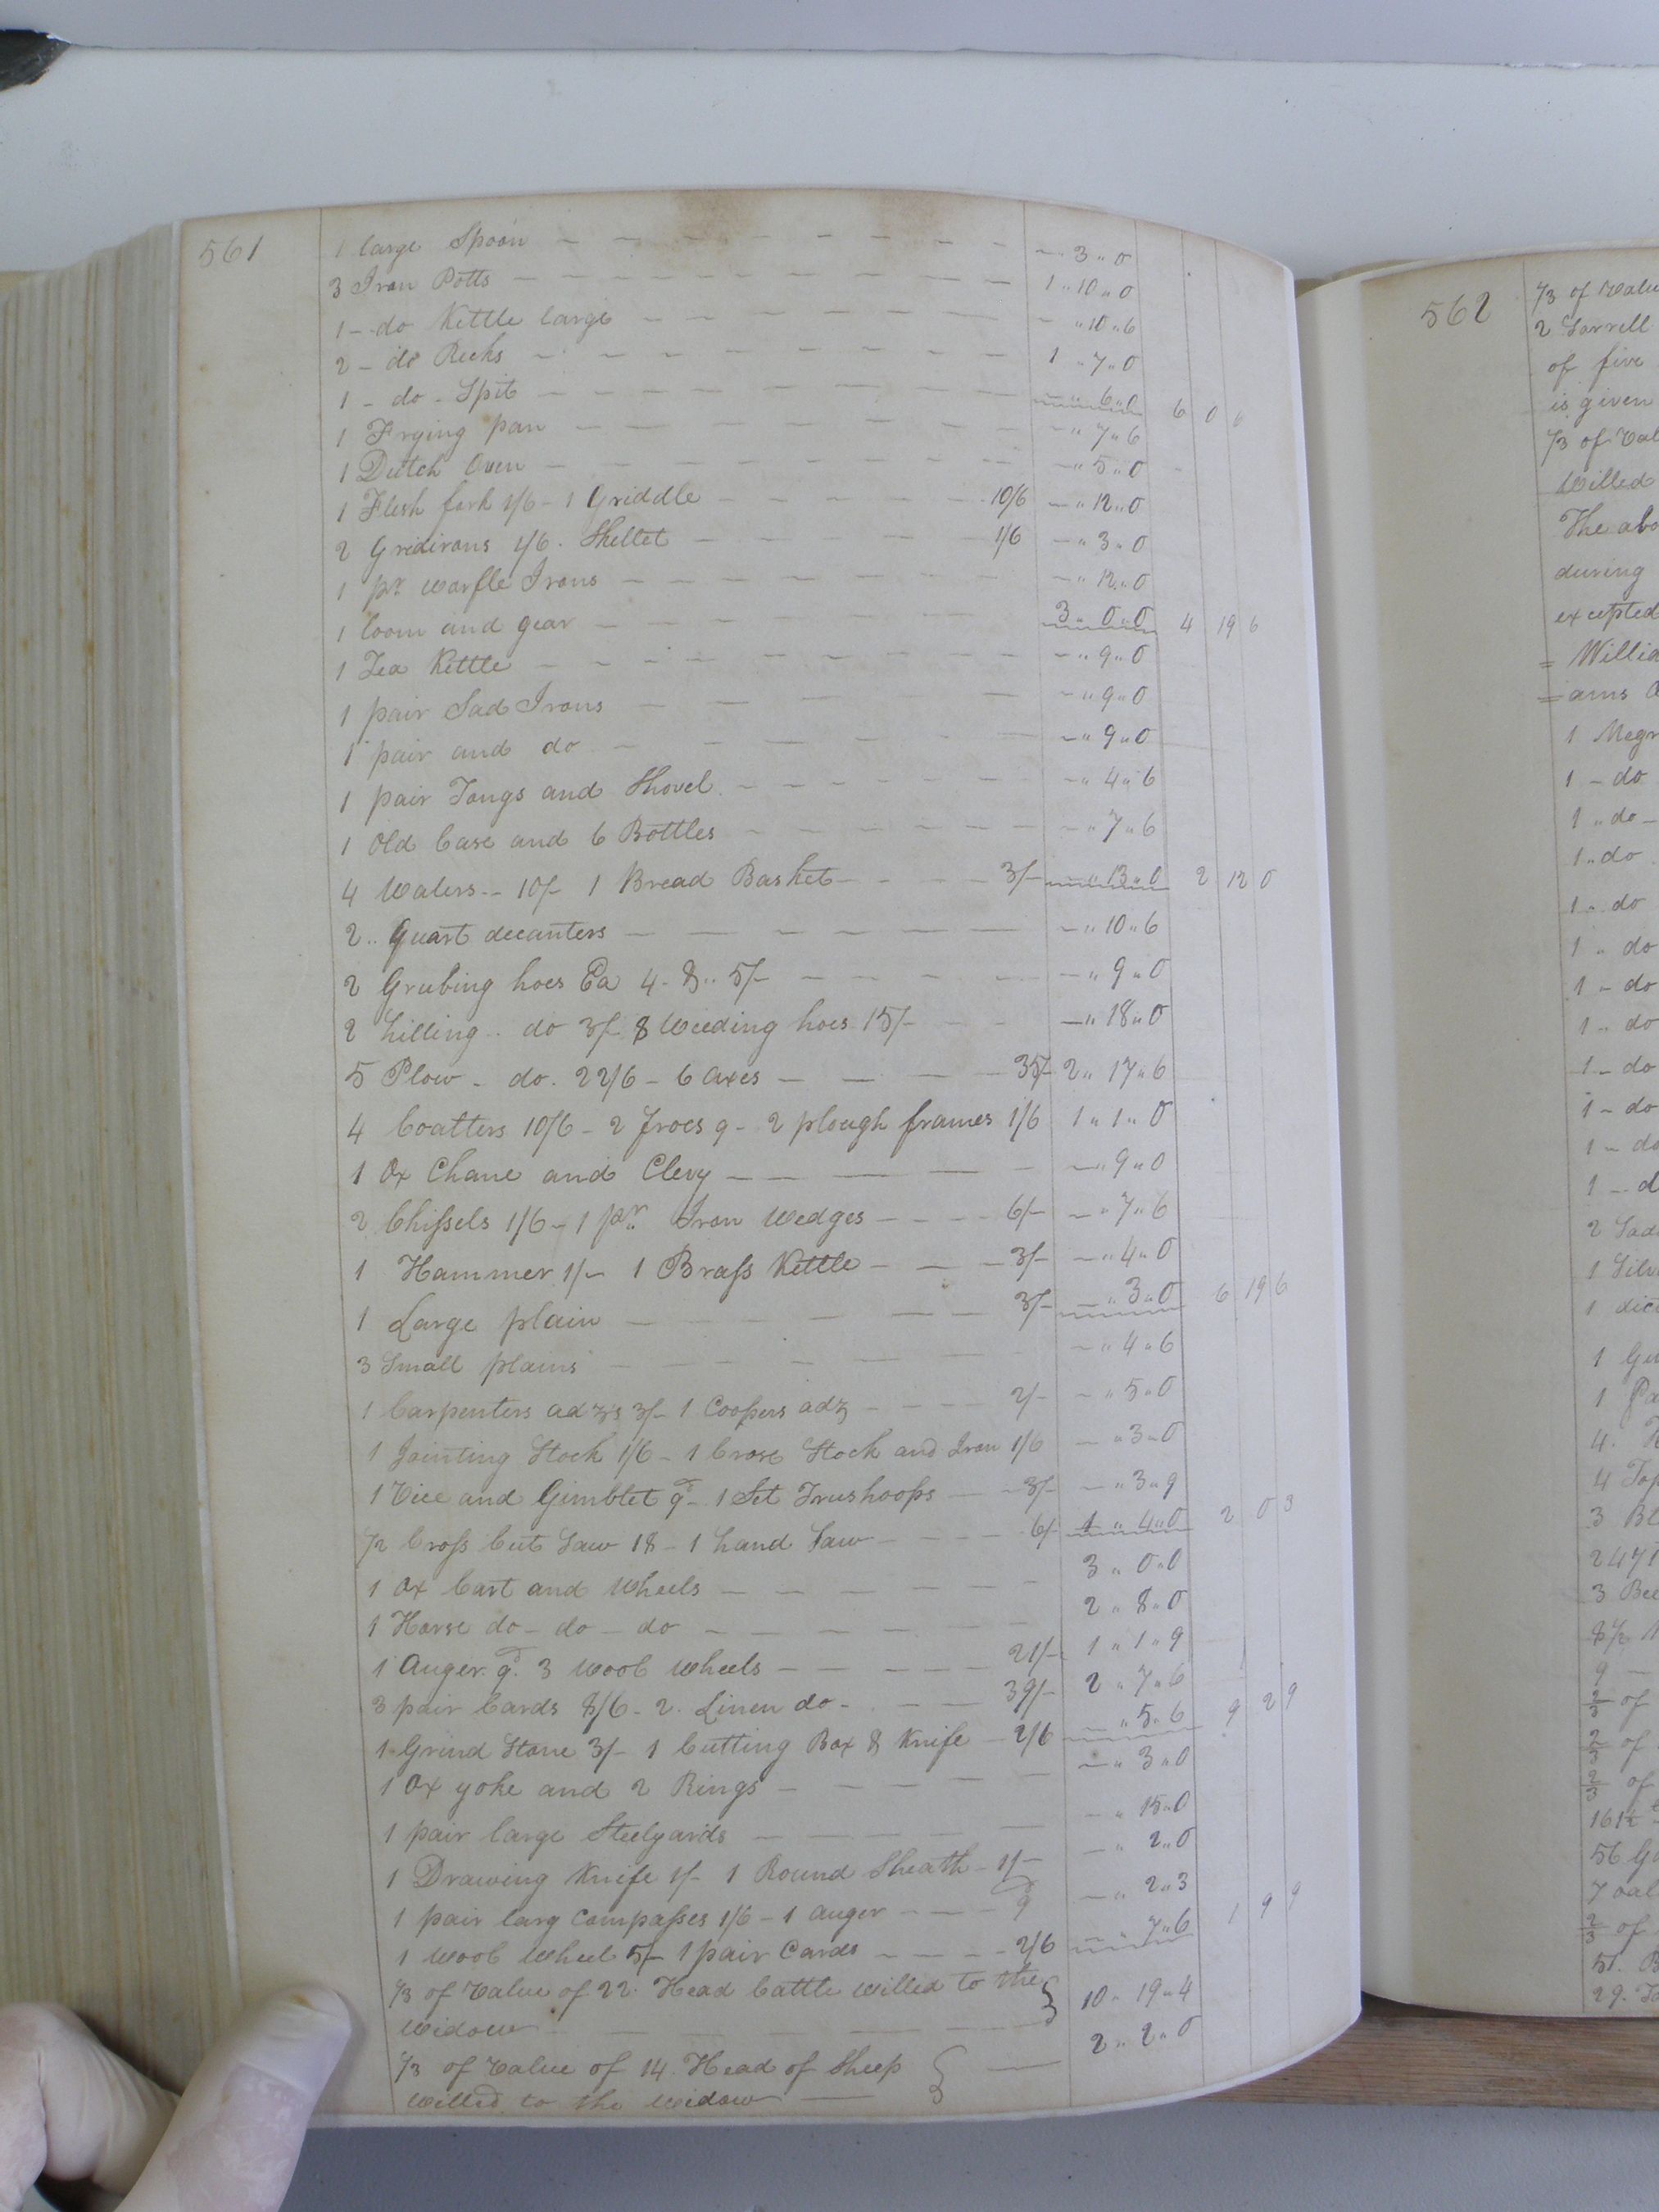 561
1 large Spoon — — — — — — — — — " 3 " 0
3 Iron Potts — — — — — — — — 1 " 10 " 0
1 – do Kettle large — — — — — — — " 10 " 6
2 – do Recks — — — — — — — 1 " 7 " 0
1 – do – Spit — — — — — — — — " 6 " 0 6 0 6
1 Frying pan — — — — — — — — " 7 " 6
1 Dutch Oven — — — — — — — — " 5 " 0
1 Flesh fork 1/6 – 1 Griddle — — — — 10/6 — " 12 " 0
2 Gredirons 1/6 . Skellet — — — — 1/6 — " 3 " 0
1 pr. warfle Irons — — — — — — — " 12 " 0
1 loom and gear — — — — — — 3 " 0 " 0 4 19 6
1 Tea Kettle — — — — — — — — " 9 " 0
1 pair Sad Irons — — — — — — " 9 " 0
1 pair and do — — — — — — — " 9 " 0
1 pair Tongs and Shovel — — — — — " 4 " 6
1 Old Case and 6 Bottles — — — — — " 7 " 6
4 Waters – 10/– 1 Bread Basket — — — 3/– — " 13 " 0 2 12 0
2 .. Quart decanters — — — — — — — " 10 " 6
2 Grubing hoes Ea 4 – & .. 5/– — — — — — " 9 " 0
2 hilling .. do 3/– 8 Weeding hoes 15/– — — — " 18 " 0
5 Plow – do . 22/6 – 6 axes — — — 35/– 2 " 17 " 6
4 Coatters 10/6 – 2 froes 9 – 2 plough frames 1/6 1 " 1 " 0
1 Ox Chane and Clevy — — — — — — " 9 " 0
2 Chissels 1/6 – 1 pr. Iron Wedges — — — 6/– — " 7 " 6
1 Hammer 1/– 1 Brass Kettle — — — 3/– — " 4 " 0
1 Large plain — — — — — 3/– — " 3 " 0 6 19 6
3 Small plains — — — — — — — " 4 " 6
1 Carpenters adzs 3/– 1 Coopers adz — — — 2/– — " 5 " 0
1 Jointing Stock 1/6 – 1 Crose Stock and Iron 1/6 — " 3 " 0
1 Vice and Gimblet 9d – 1 Set Trushoops — 3/– — " 3 " 9
1/2 Cross Cut Saw 18 – 1 hand Saw — — — 6/– 1 " 4 " 0 2 0 3
1 Ox Cart and Wheels — — — — — 3 " 0 " 0
1 Horse do – do – do — — — — — 2 " 8 " 0
1 Auger . 9d . 3 Wool Wheels — — — — 21/– 1 " 1 " 9
3 pair Cards 8/6 – 2 . Linen do – . — — 39/– 2 " 7 " 6
1 Grind Stone 3/– 1 Cutting Box & Knife — 2/6 — " 5 " 6 9 2 9
1 Ox yoke and 2 Rings — — — — — — " 3 " 0
1 pair large Steelyards — — — — — " 15 " 0
1 Drawing Knife 1/– 1 Round Sheath – 1/– — " 2 " 0
1 pair larg Compasses 1/6 – 1 auger — — — 9d — " 2 " 3
1 Wool Wheel 5/– 1 pair Cards — — — 2/6 — " 7 " 6 1 9 9
1/3 of Value of 22 . Head Cattle Willed to the
Widow — — — — — 10 " 19 " 4
1/3 of Value of 14 . Head of Sheep — 2 " 2 " 0
Willed to the Widow —
562
1/3 of Valu
2
of five
is given
1/3 of Val
Willed
The abo
during
excepted
= Willia
= ams
1 Negr
1 – do
1 .. do –
1 .. do
1 .. do
1 .. do
1 – do
1 .. do
1 – do
1 – do
1 – do
1 – d
2 Sad
1 Silv
1
1 Gu
1 Pa
4 .
4
3 Bl
247
3 Bee
9 —
2/3 of
2/3 of
2/3 of
56 Ga
2/3 of
51 . B
29 .